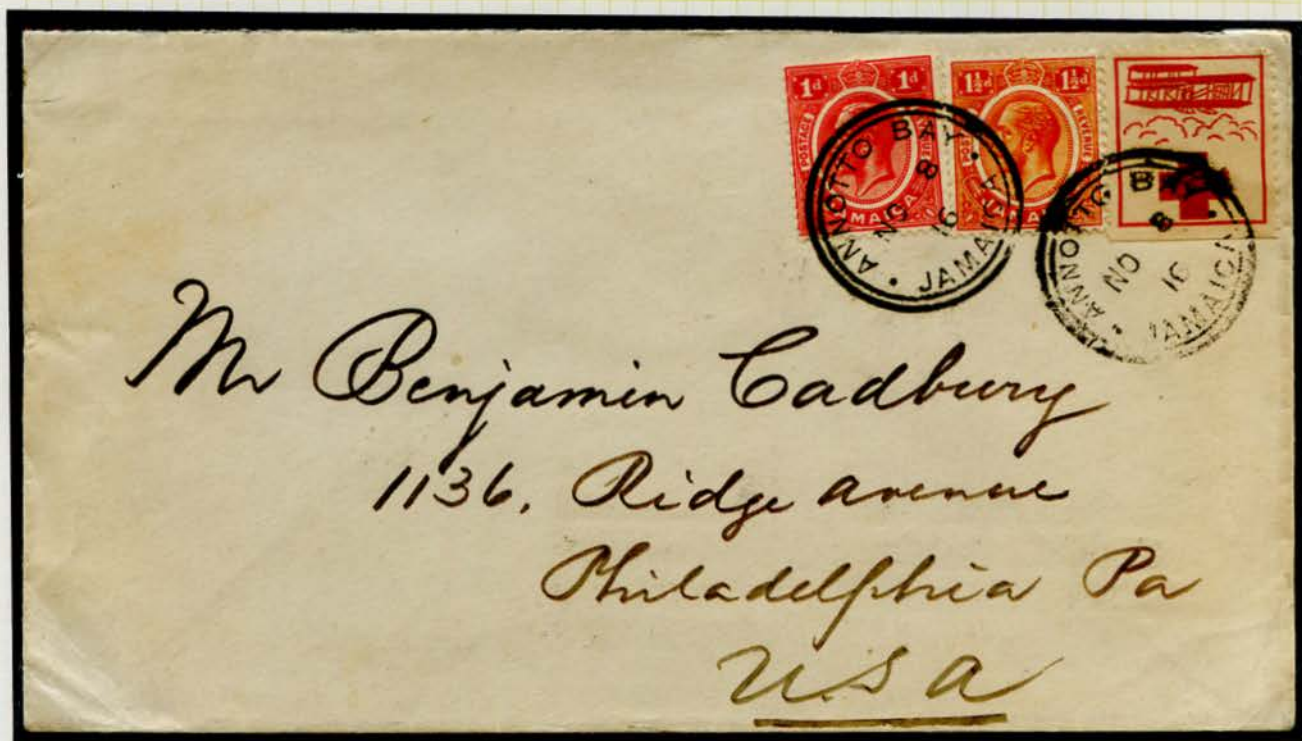 1d 1d
POSTAGE REVENUE
JAMAICA
1½d 1½d
POSTAGE REVENUE
JAMAICA
ANNOTTO BAY
NO 8
16
JAMAICA
ANNOTTO BAY
NO 8
16
JAMAICA
Mr Benjamin Cadbury
1136, Ridge Avenue
Philadelphia Pa
U.S A